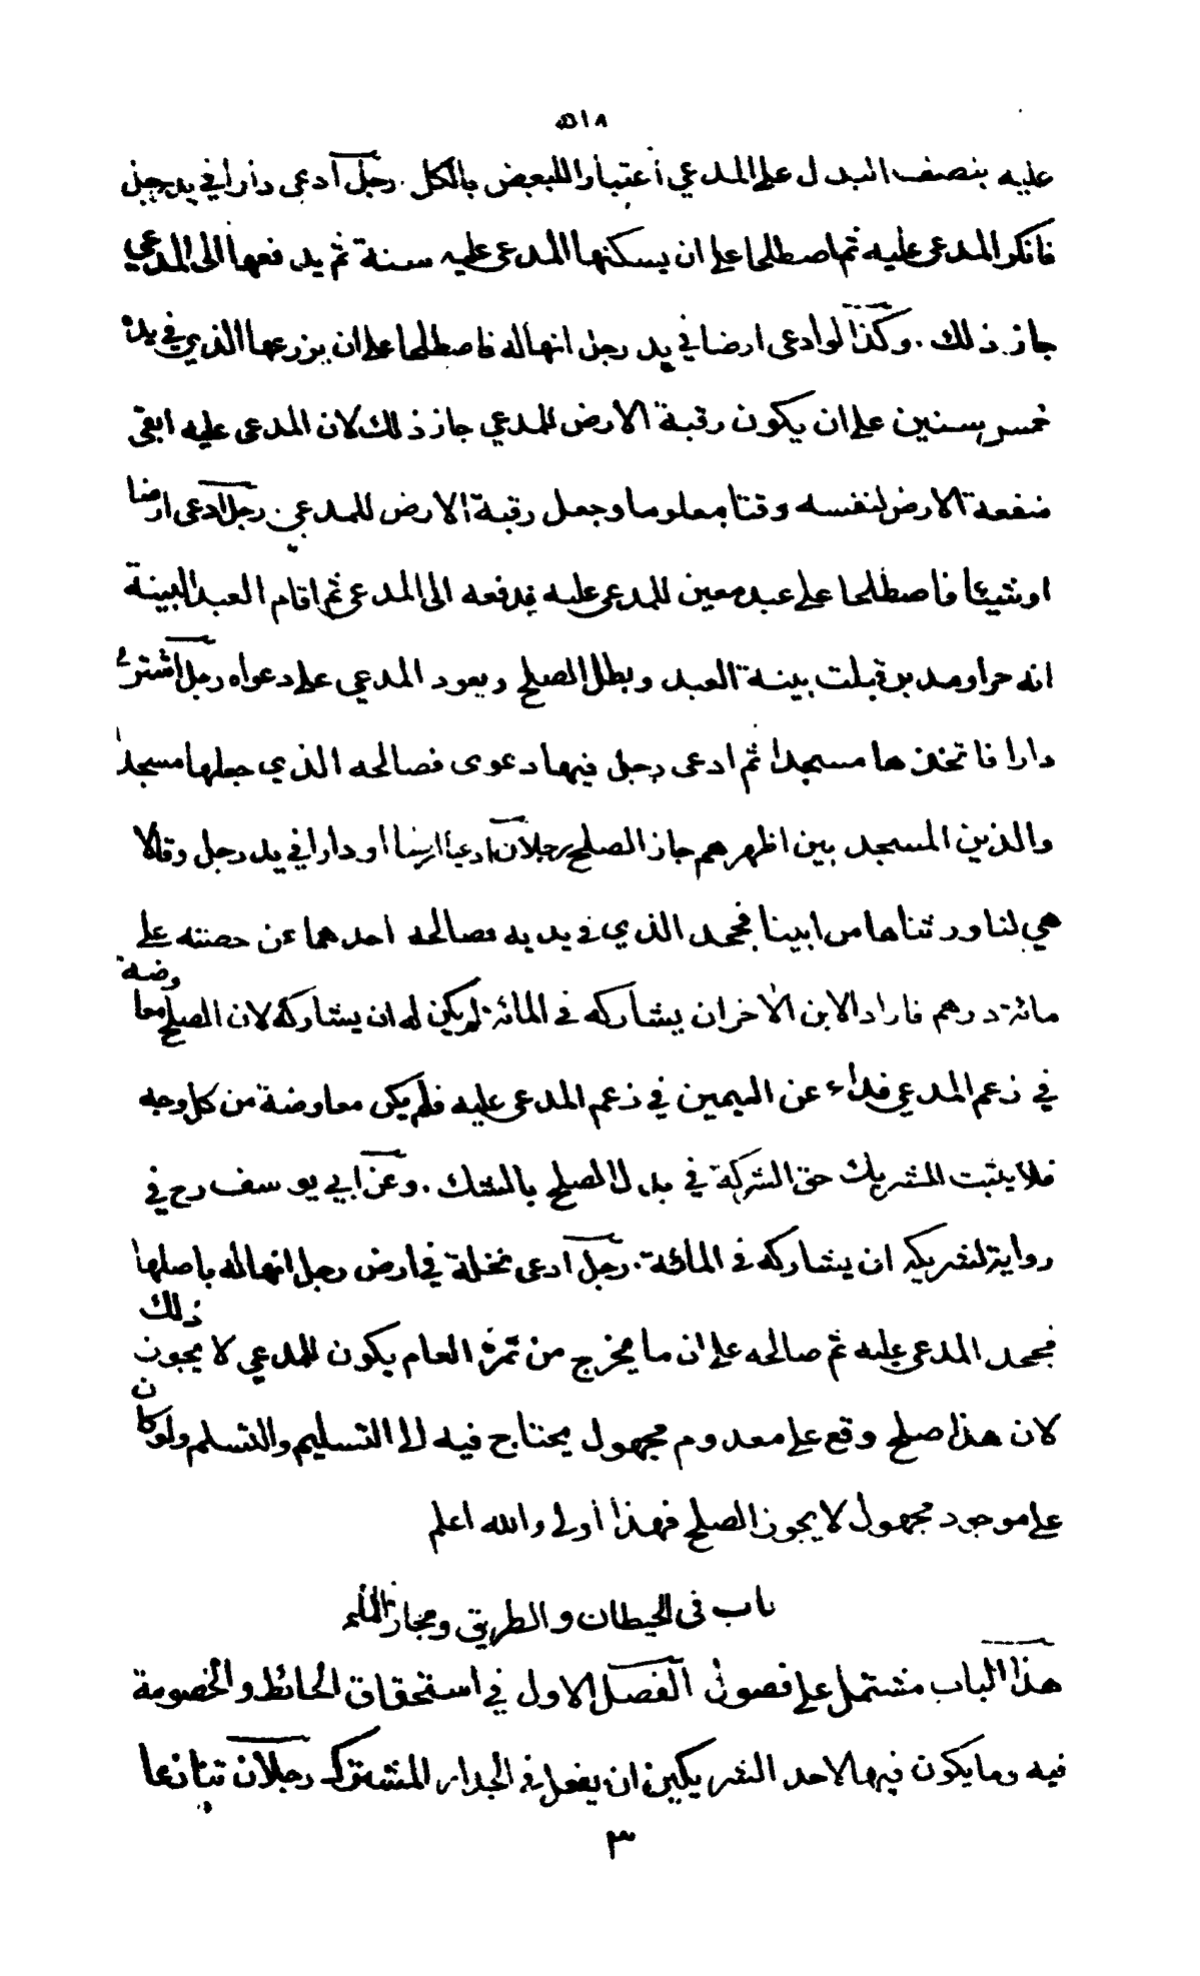 ٥١٨
عليه بنصف البدل على المدعي اعتبارا للبعض بالكل . رجل ادعى دارا في يد رجل
فانكر المدعى عليه ثم اصطلحا على ان يسكنها المدعى عليه سنة ثم يدفعها الى المدعي
جاز ذلك . وكذا لو ادعى ارضا في يد رجل انها له فاصطلحا على ان يزرعها الذي في يده
خمس سنين على ان يكون رقبة الارض للمدعي جاز ذلك لان المدعى عليه ابقى
منفعة الارض لنفسه وقتا معلوما وجعل رقبة الارض للمدعي . رجل ادعى ارضا
او شيئا فاصطلحا على عبد معين للمدعى عليه فدفعه الى المدعى ثم اقام العبد البينة
انه حر او مدبر قبلت بينة العبد وبطل الصلح ويعود المدعي على دعواه رجل اشترى
دارا فاتخذها مسجدا ثم ادعى رجل فيها دعوى فصالحه الذي جعلها مسجدا
والذين المسجد بين اظهرهم جاز الصلح رجلان ادعيا ارضا او دارا في يد رجل وقالا
هي لنا ورثناها من ابينا فجحد الذي في يديه فصالحه احدهما عن حصته على
مائة درهم فاراد الابن الاخر ان يشاركه في المائة لم يكن له ان يشاركه لان الصلح معاوضة
في زعم المدعي فداء عن اليمين في زعم المدعى عليه فلم يكن معاوضة من كل وجه
فلا يثبت للشريك حق الشركة في بدل الصلح بالشك . وعن ابي يوسف رح في
رواية لشريكه ان يشاركه في المائة . رجل ادعى نخلة في ارض رجل انها له باصلها
فجحد المدعى عليه ثم صالحه على ان ما يخرج من ثمرة العام يكون للمدعي لا يجوز ذلك
لان هذا صلح وقع على معدوم مجهول يحتاج فيه الى التسليم والتسلم ولو كان
على موجود مجهول لا يجوز الصلح فهذا اولى والله اعلم
باب في الحيطان والطريق ومجاري الماء
هذا الباب مشتمل على فصول الفصل الاول في استحقاق الحائط والخصومة
فيه وما يكون فيها لاحد الشريكين ان يفعل في الجدار المشترك رجلان تنازعا
٣